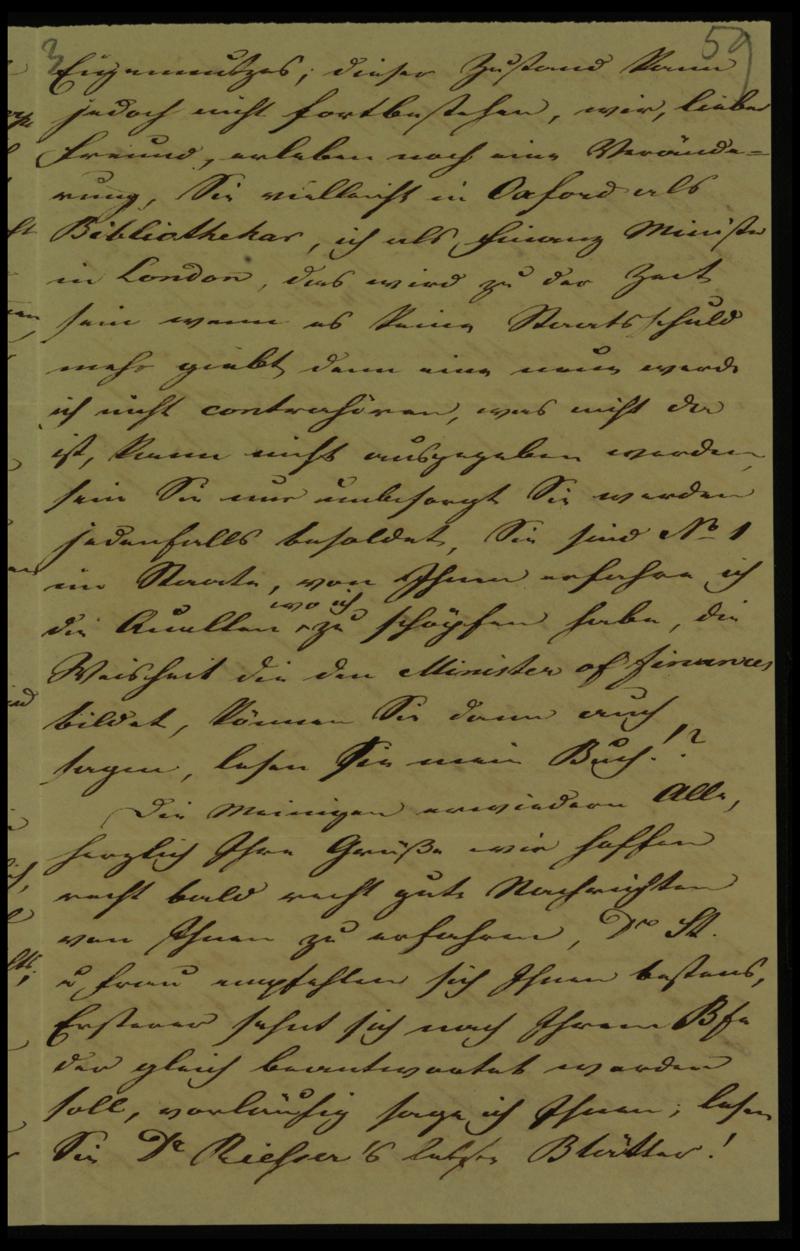 3 59
Eigennutzes; dieser Zustand kann
jedoch nicht fortbestehen, wir, lieber
Freund, erleben noch eine Verände=
rung, Sie vielleicht in Oxford als
Bibliothekar, ich als Finanz Minister
in London, das wird zu der Zeit
sein wenn es keine Staatsschuld
mehr giebt denn eine neue werde
ich nicht contrahiren, was nicht da
ist, kann nicht ausgegeben werden,
sein Sie nur unbesorgt Sie werden
jedenfalls besoldet, Sie sind No 1
im Staate, von Ihnen erfahre ich
die Quellen wo ich zu schöpfen habe, die
Weisheit die den Minister of finances
bildet, können Sie dann auch
sagen, lesen Sie mein Buch!?
Die Meinigen erwiedern Alle,
herzlich Ihre Grüße wir hoffen
recht bald recht gute Nachrichten
von Ihnen zu erfahren, Dr St.
u Frau empfehlen sich Ihnen bestens,
Ersterer sehnt sich nach Ihrem Bfe
der gleich beantwortet werden
soll, vorläufig sage ich Ihnen; lesen
Sie Dr Riesser's letzte Blätter!